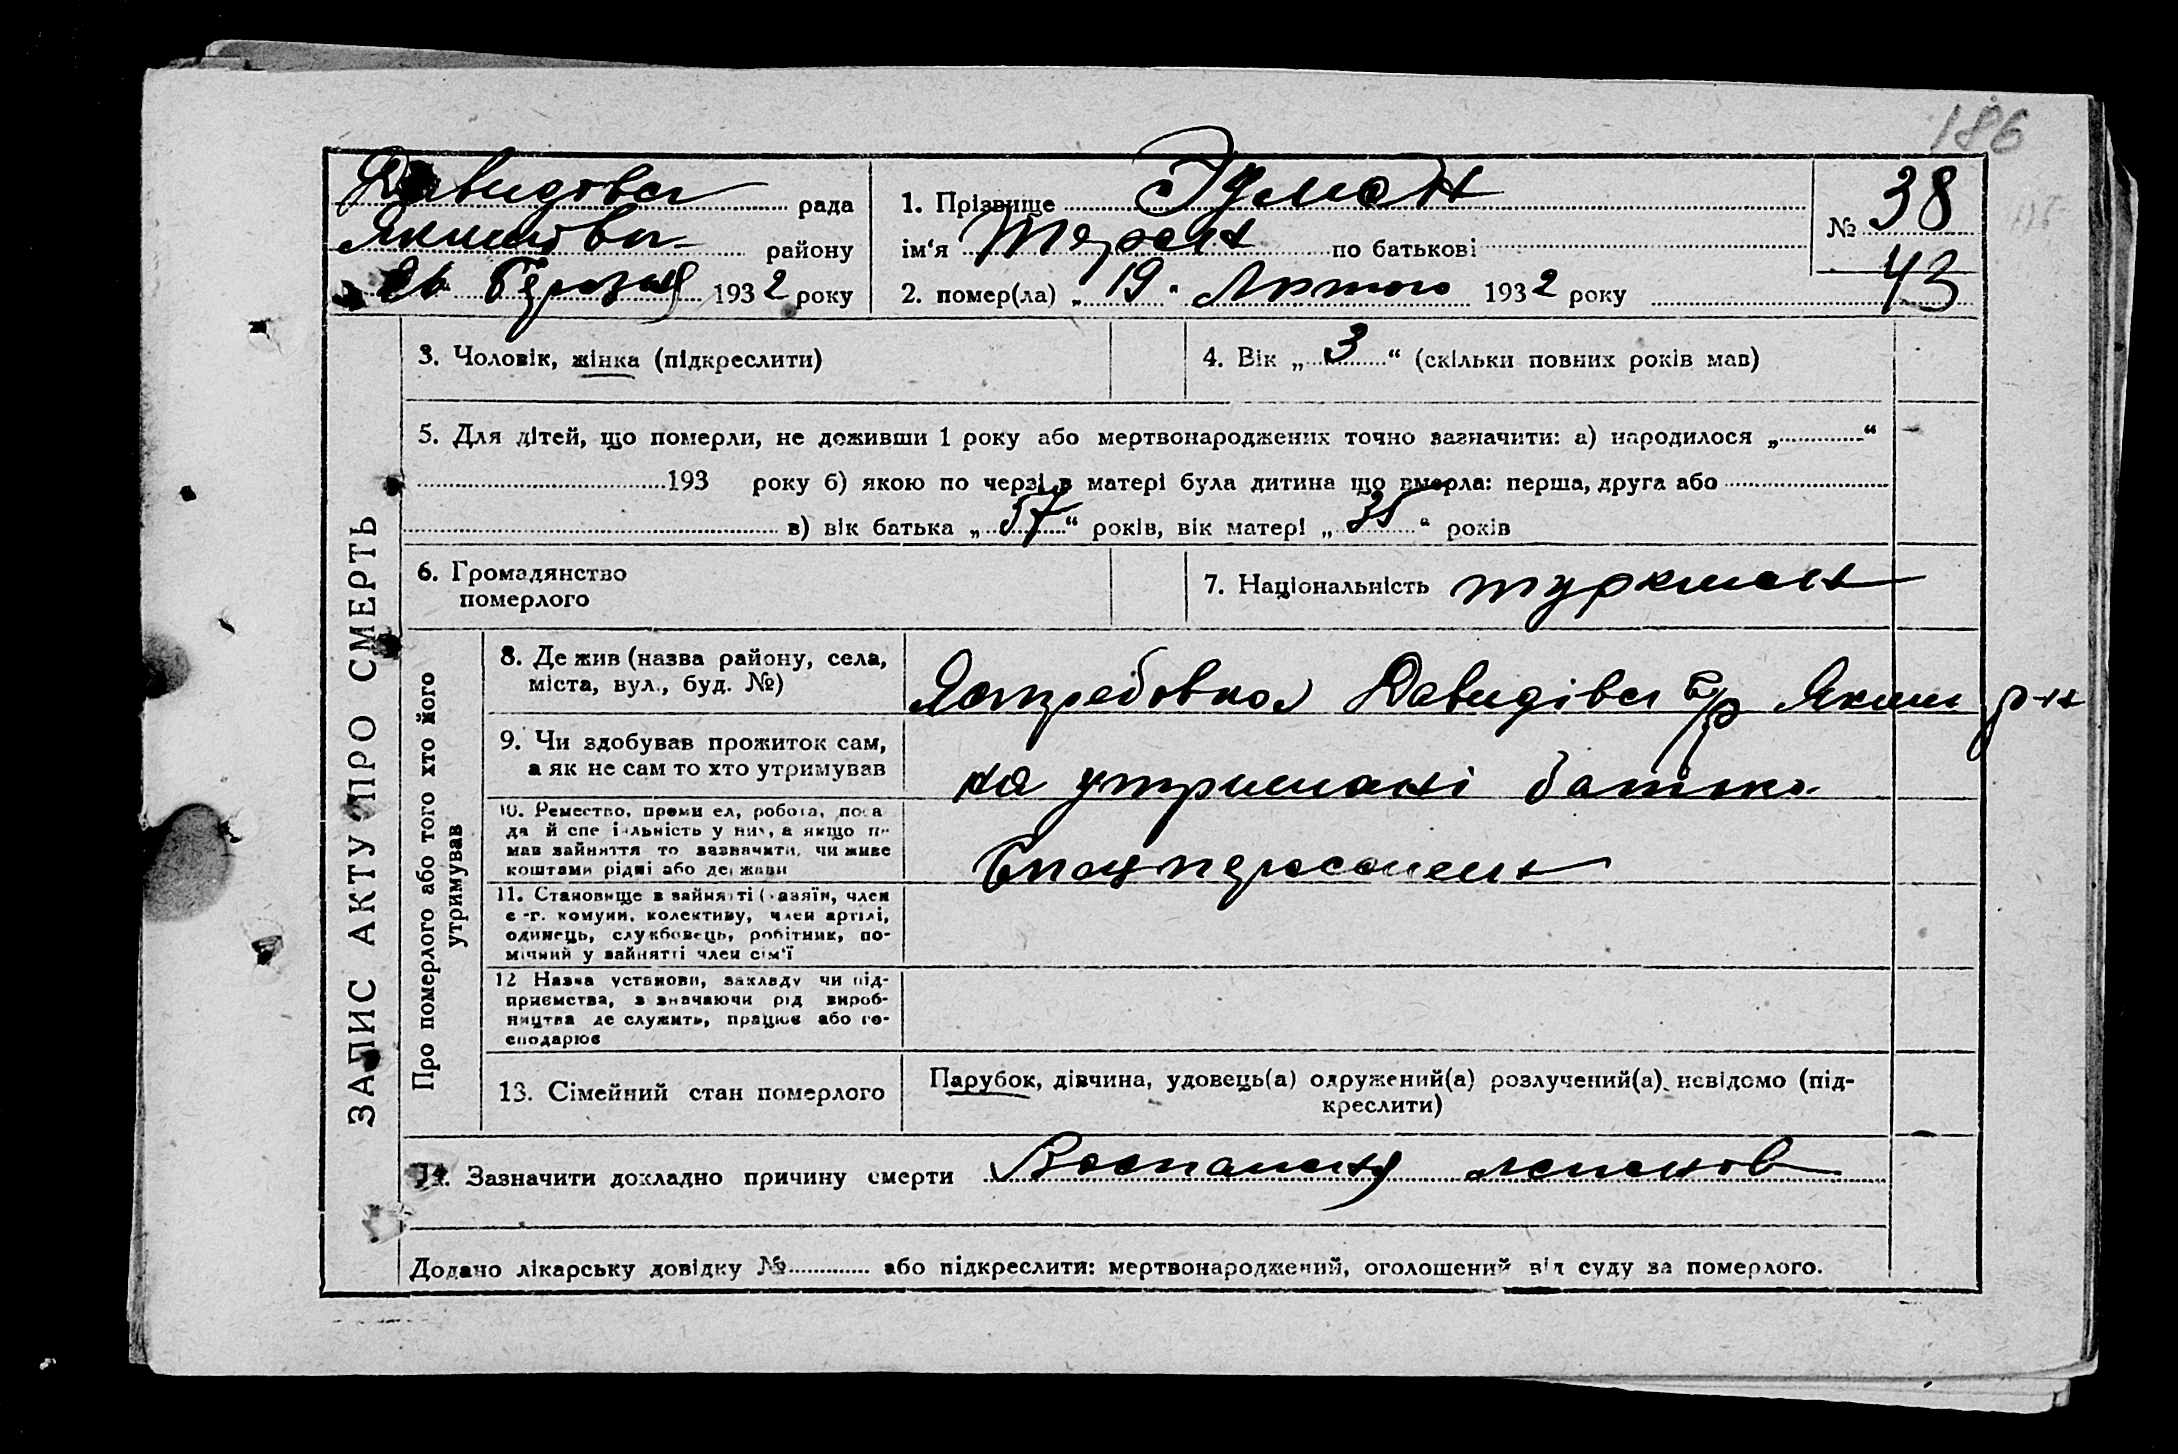 186
Давидовсь рада
Якимовсь району
26 березня 1932 року
1. Прізвище Эдман
ім‘я по батькові
2. помер(ла) „ 19 “ Лютого 1932 року
№ 38
43
3. Чоловік, жінка (підкреслити)
4. Вік „ 3 “ (скільки повних років мав)
5. Для дітей, що померли, не доживши 1 року або мертвонароджених точно зазначити: а) народилося „ “
193 року б) якою по черзі в матері була дитина що вмерла: перша, друга або
в) вік батька „ 57 “ років, вік матері „ 35 “ років
6. Громадянство
померлого
7. Національність туркмен
ЗАПИС АКТУ ПРО СМЕРТЬ
Про померлого або того хто його
утримував
8. Де жив (назва району, села,
міста, вул., буд. №)
Ястребовка Давидівсь с/р Яким р-н
9. Чи здобував прожиток сам,
а як не сам то хто утримував
на утримані батька
10. Ремество, промисел, робота, поса
да й спеціальність у них, а якщо не
мав зайняття то зазначити, чи живе
коштами рідні або держави
Спецпересел
11. Становище в зайнятті (хазяїн, член
с-г. комуни, колективу, член артілі,
одинець, службовець, робітник, по-
мічний у зайнятті член сім‘ї
12 Назва установи, закладу чи під-
приємства, зазначаючи рід вироб-
ництва де служить, працює або го-
сподарює
13. Сімейний стан померлого
Парубок, дівчина, удовець(а) одружений(а) розлучений(а), невідомо (під-
креслити)
14. Зазначити докладно причину смерти Воспаления легенов
Додано лікарську довідку № або підкреслити: мертвонароджений, оголошений від суду за померлого.